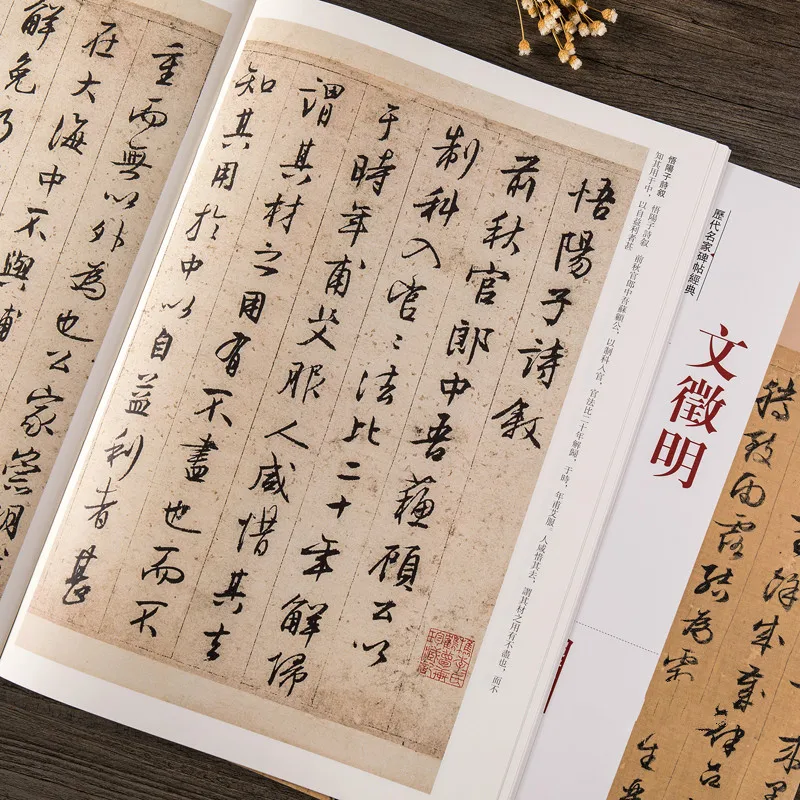 悟陽子詩叙
悟陽子詩叙 前秋官郎中吾蘇顧公，以制科入官，官法比二十年解歸，于時，年甫艾服，人咸惜其去，謂其材之用有不盡也，而不
知其用于中，以自益利者甚
悟陽子詩敘
前秋官郎中吾蘇顧公以
制科入官〻法比二十年解歸
于時年甫艾服人咸惜其去
謂其材之用有不盡也而不
知其用於中以自益利者甚
重而無以外為也公家崇明
在大海中不與
解免乃
歷代名家碑帖經典
文徵明